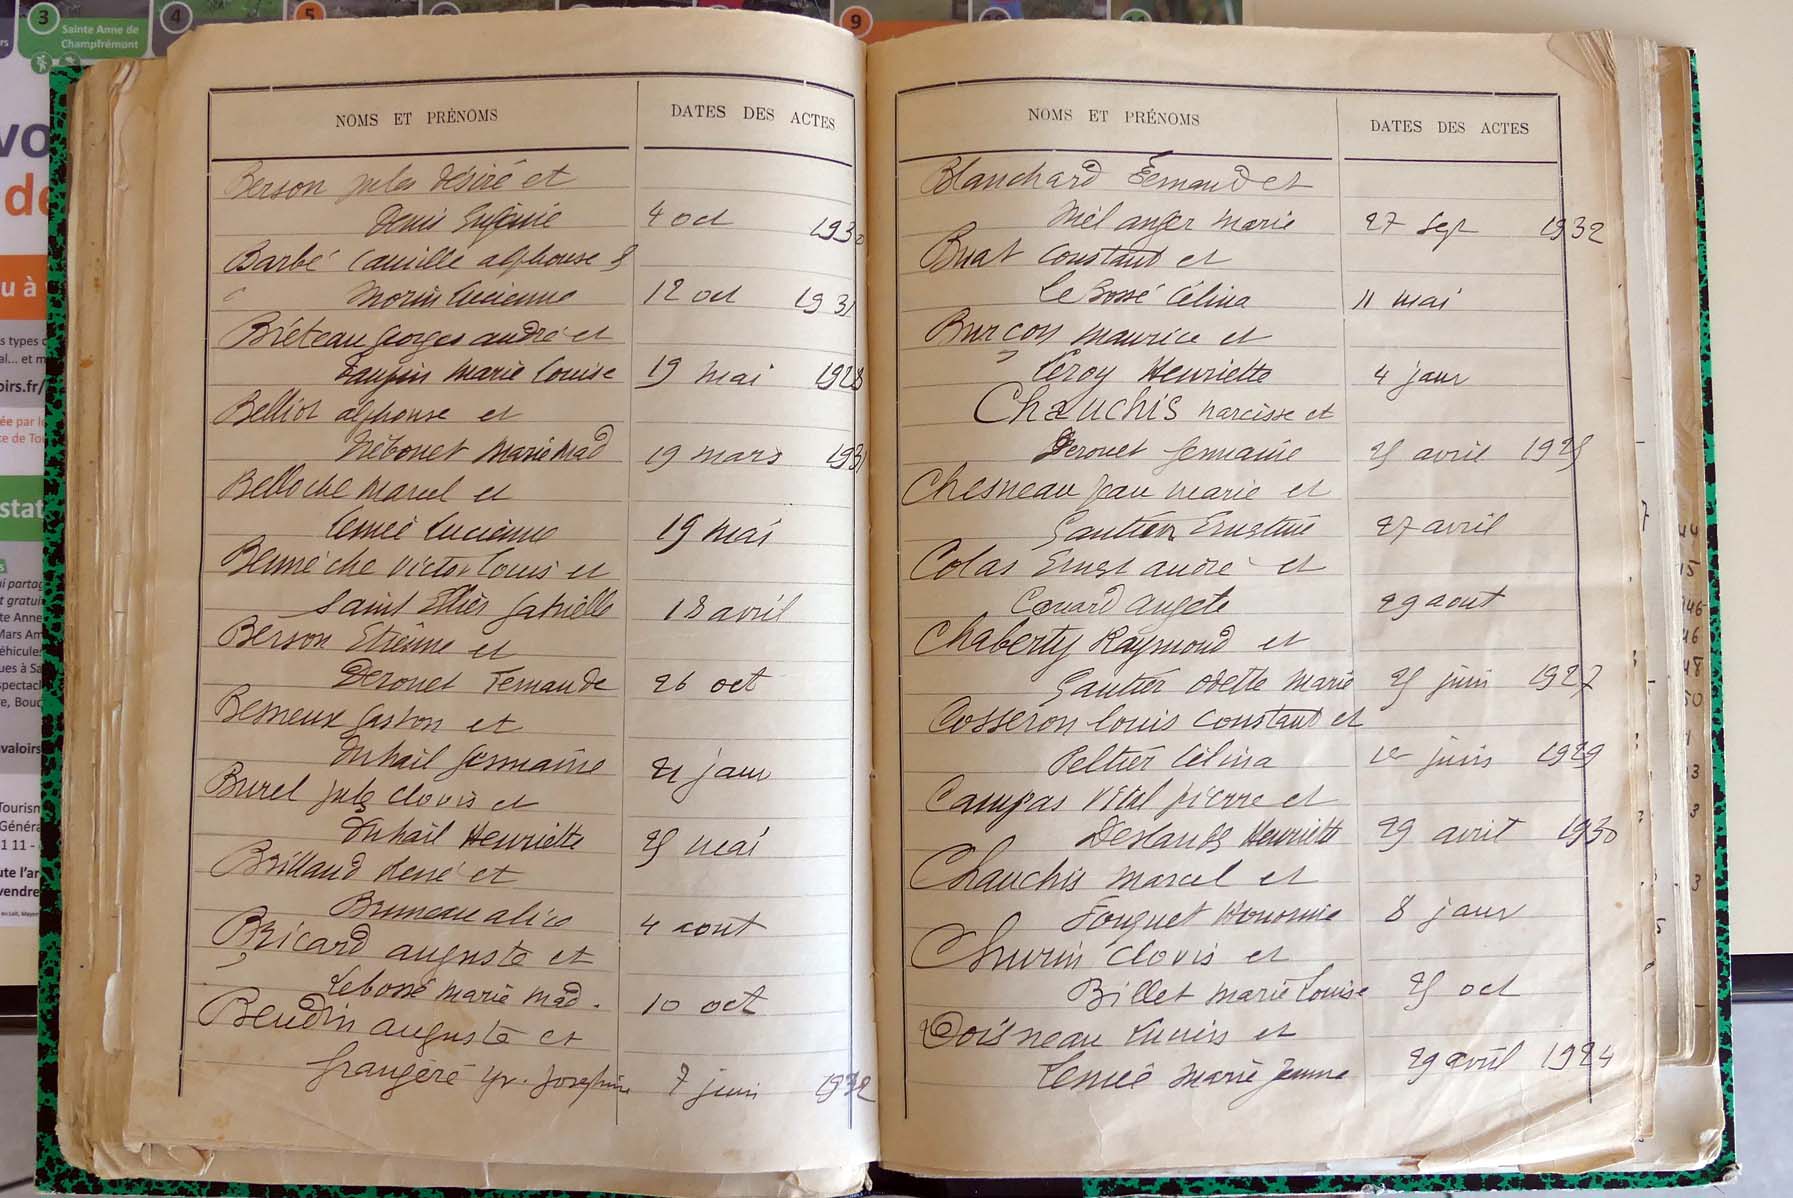 3
4
5
9
Sainte Anne de
Champfrémont
NOMS ET PRÉNOMS DATES DES ACTES
Berson Jules Désiré et
Denis Eugénie 4 oct 1930
Barbé Camille alphonse &
Morin Lucienne 12 oct 1931
Biéteau Georges andré et
Marie Louise 19 mai 1928
Belliot alphonse et
Nébouet Marie Mad 19 mars 1931
Belloche Marcel et
Lemée Lucienne 19 mai
Bennèche Victor Louis et
Saint Ellier Gabrielle 18 avril
Berson Etienne et
Derouet Fernande 26 oct
Besneux Gaston et
Duhail Germaine 21 janv
Burel Jules Clovis et
Duhail Henriette 25 mai
Brillaud René et
Bruneau alice 4 aout
Bricard auguste et
Lebossé Marie Mad. 10 oct
Beudin auguste et
Grangéré Yv. Josephine 7 juin 1932
NOMS ET PRÉNOMS DATES DES ACTES
Blanchard Fernand et
Mélanger Marie 27 Sept 1932
Buat Constant et
Le Bossé Célina 11 mai
Burcon Maurice et
Leroy Henriette 4 janv
Chauchis Narcisse et
Derouet Germaine 25 avril 1925
Chesneau Jean Marie et
Gautier Ernestine 27 avril
Colas Ernest andré et
Couard angèle 29 aout
Chaberty Raymond et
Gautier Odette Marie 25 juin 1927
Cosseron Louis Constant et
Peltier Célina 1er juin 1929
Campas Vital Pierre et
Deslandes Henriette 29 avril 1930
Chauchis Marcel et
Fouquet Honorine 8 janv
Churin Clovis et
Billet Marie Louise 25 oct
Doisneau Lucien et
Lemée Marie Jeanne 29 avril 1924